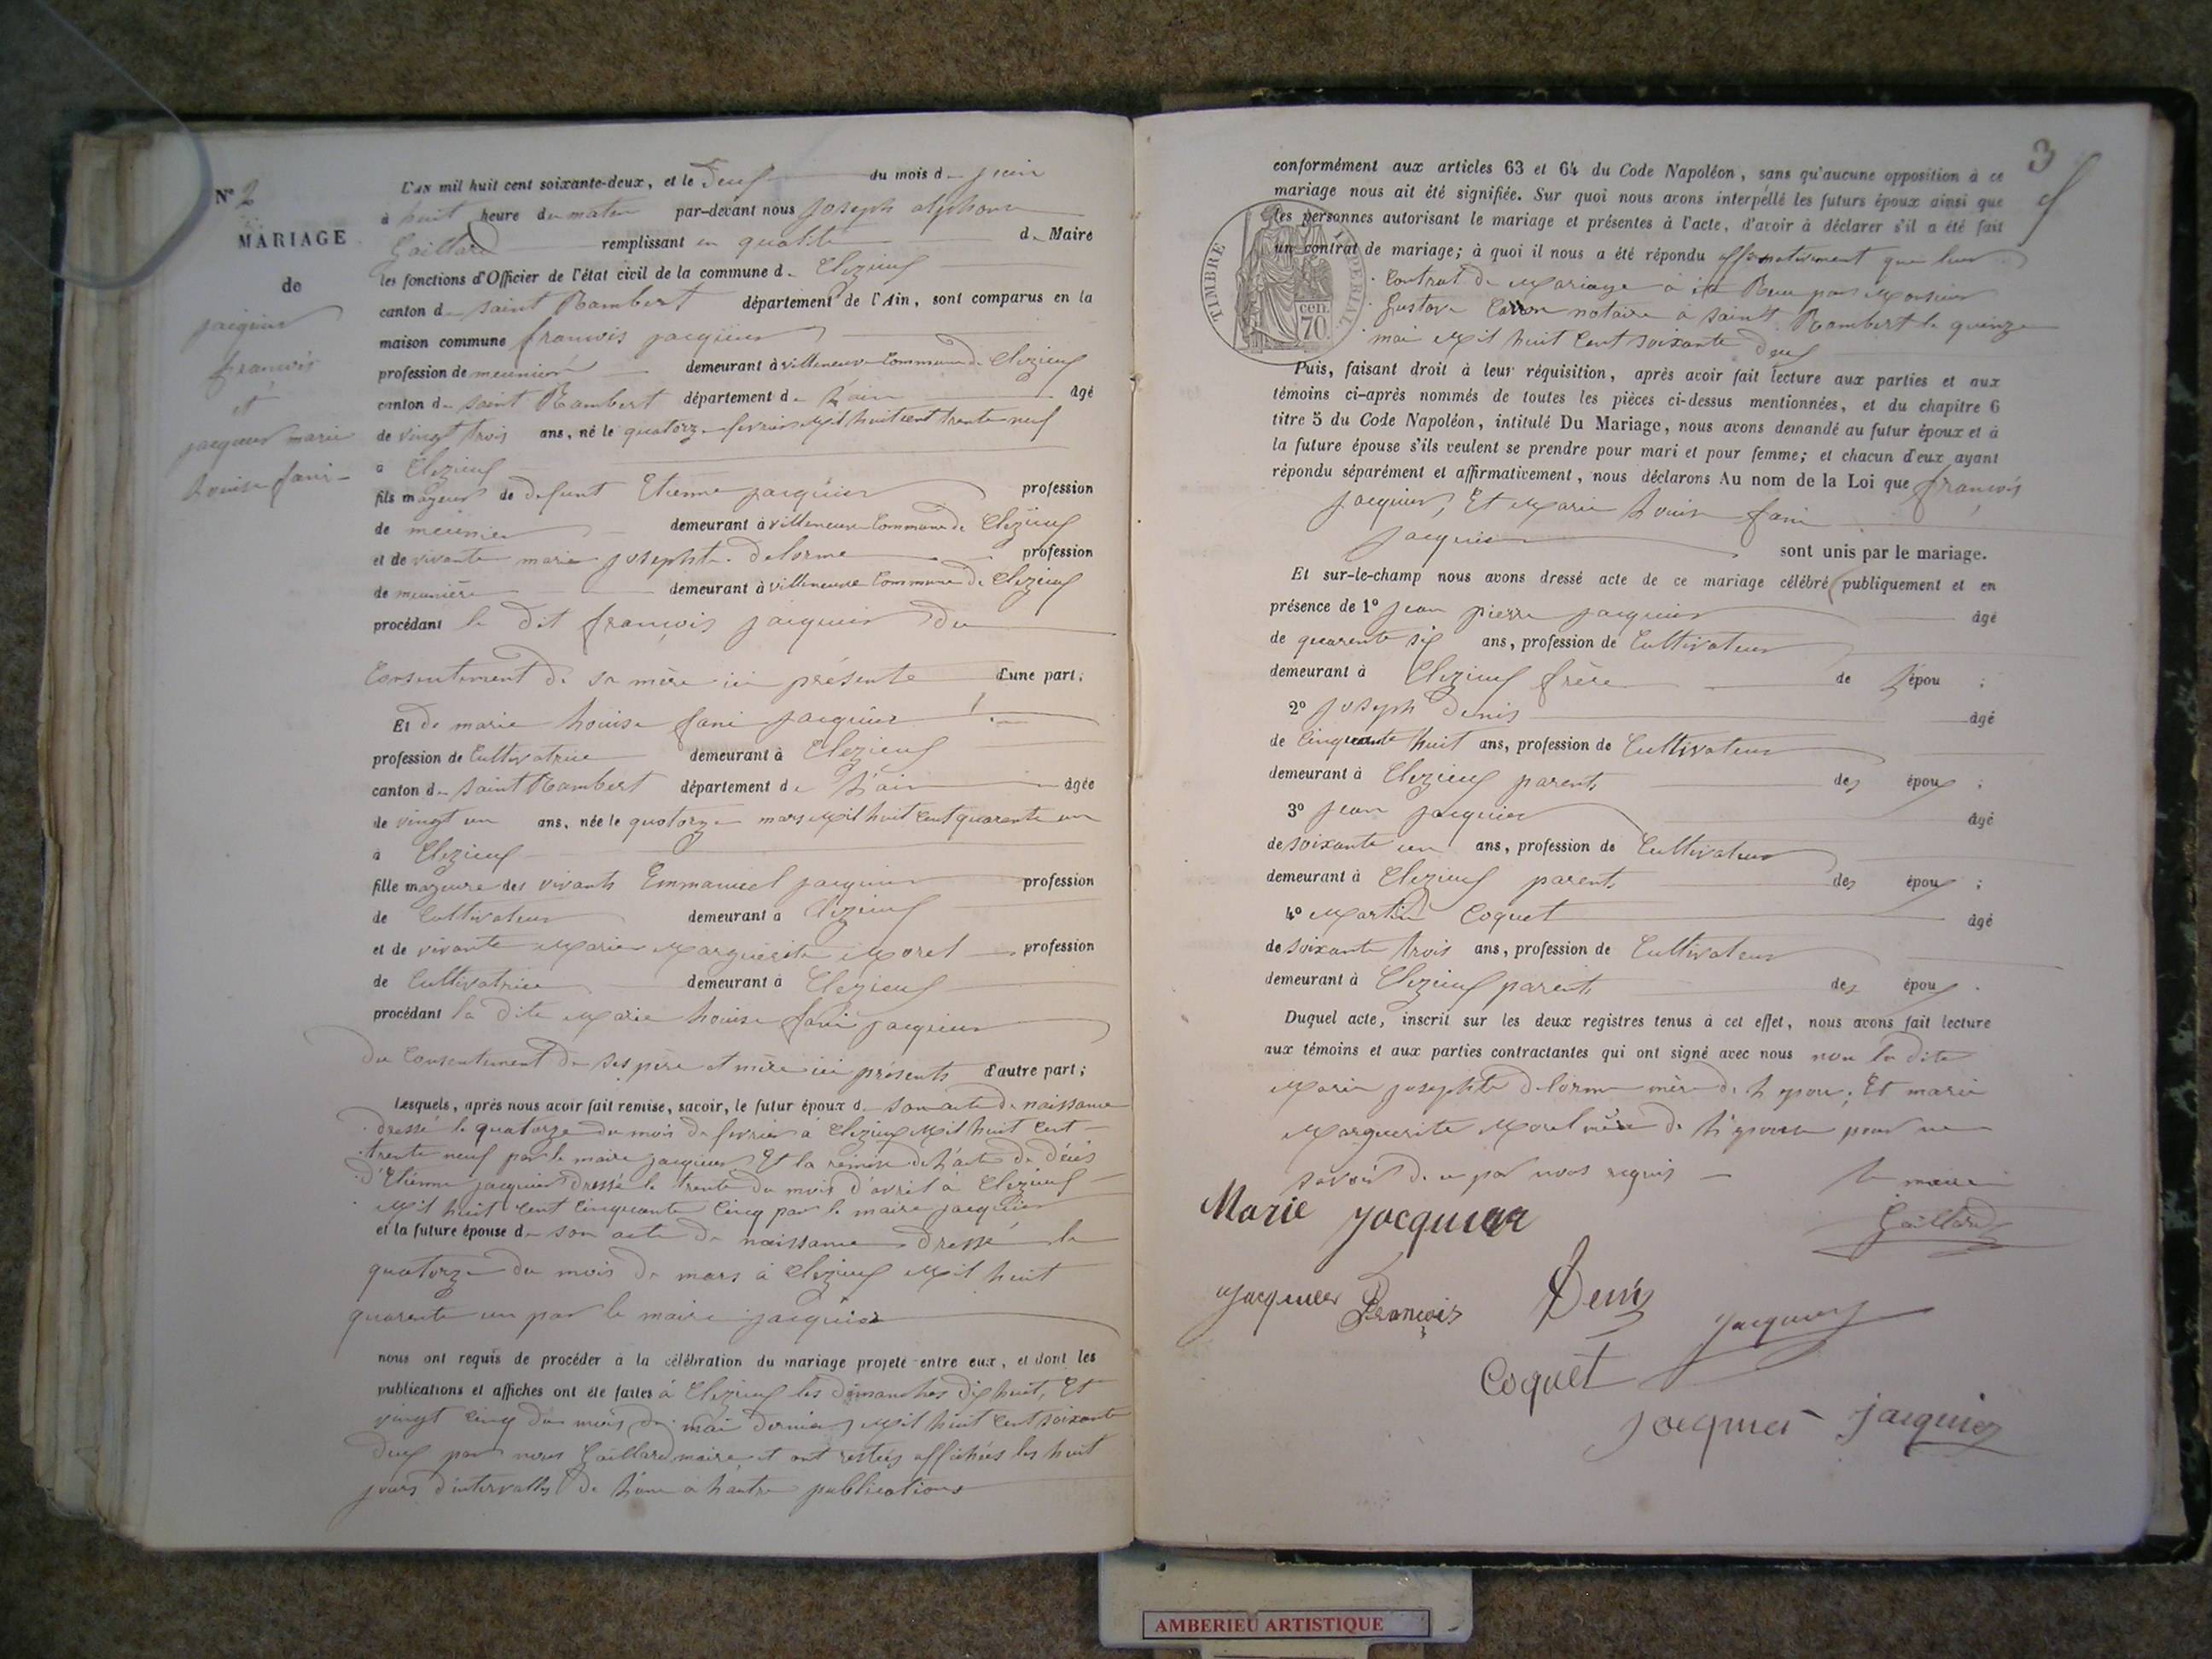 N° 2
MARIAGE
de
jacquier
françois
et
jacquier marie
Louise fani
L'AN mil huit cent soixante-deux, et le deux du mois de juin
à huit heure du matin par-devant nous joseph alphonse
Gaillard remplissant en qualité de Maire
les fonctions d'Officier de l'état civil de la commune de Clezieux
canton de saint Rambert département de l'Ain, sont comparus en la
maison commune françois jacquier
profession de meunier demeurant à villeneuve Commune de Clezieux
canton de saint Rambert département de L'ain âgé
de vingt trois ans, né le quatorze fevrier Mil huit cent trente neuf
à Clezieux
fils mageur de defunt Etienne jacquier profession
de meunier demeurant à villeneuve Commune de Clezieux
et de vivante marie josephte delorme profession
de meunière demeurant à villeneuve Commune de Clezieux
procédant le dit françois jacquier du
Consentement de sa mère ici présente d'une part;
Et de marie Louise fani jacquier
profession de Cultivatrice demeurant à Clezieux
canton de saint Rambert département de L'ain âgée
de vingt un ans, née le quatorze mars Mil huit Cent quarente un
à Clezieux
fille mageure des vivants Emmanuel jacquier profession
de Cultivateur demeurant à Clezieux
et de vivante Marie Marguerite Morel profession
de Cultivatrice demeurant à Clezieux
procédant la dite Marie Louise fani jacquier
du Consentement de ses père et mère ici présents d'autre part;
Lesquels, après nous avoir fait remise, savoir, le futur époux de son acte de naissance
dressé le quatorze du mois de fevrier à Clezieux Mil huit Cent
trente neuf par le maire jacquier Et la remise de L'acte de décès
d'Etienne jacquier dressé le trente du mois d'avril à Clezieux
Mil huit Cent Cinquante Cinq par le maire jacquier
et la future épouse de son acte de naissance dressé le
quatorze du mois de mars à Clezieux Mil huit
quarente un par le maire jacquier
nous ont requis de procéder à la célébration du mariage projeté entre eux, et dont les
publications et affiches ont été faites à Clezieux les dimanches dix huit, Et
vingt Cinq du mois de mai dernier Mil huit Cent soixante
deux par nous Gaillard maire et ont restés affichées les huit
jours d'intervalles de L'une à L'autre publications
3
conformément aux articles 63 et 64 du Code Napoléon, sans qu'aucune opposition à ce
mariage nous ait été signifiée. Sur quoi nous avons interpellé les futurs époux ainsi que
les personnes autorisant le mariage et présentes à l'acte, d'avoir à déclarer s'il a été fait
un contrat de mariage; à quoi il nous a été répondu affirmativement que leur
Contrat de Mariage a été Reçu par Monsieur
Gustave notaire à saint Rambert le quinze
mai Mil huit Cent soixante deux
TIMBRE IMPÉRIAL
70 cen
Puis, faisant droit à leur réquisition, après avoir fait lecture aux parties et aux
témoins ci-après nommés de toutes les pièces ci-dessus mentionnées, et du chapitre 6
titre 5 du Code Napoléon, intitulé Du Mariage, nous avons demandé au futur époux et à
la future épouse s'ils veulent se prendre pour mari et pour femme; et chacun d'eux ayant
répondu séparément et affirmativement, nous déclarons Au nom de la Loi que françois
jacquier, Et Marie Louise fani
jacquier sont unis par le mariage.
Et sur-le-champ nous avons dressé acte de ce mariage célébré publiquement et en
présence de 1° jean pierre jacquier âgé
de quarente six ans, profession de Cultivateur
demeurant à Clezieux frère de L'épou ;
2° joseph Denis âgé
de Cinquante huit ans, profession de Cultivateur
demeurant à Clezieux parent des époux ;
3° jean jacquier âgé
de soixante un ans, profession de Cultivateur
demeurant à Clezieux parent des époux ;
4° Martin Coquet âgé
de soixante trois ans, profession de Cultivateur
demeurant à Clezieux parent des époux .
Duquel acte, inscrit sur les deux registres tenus à cet effet, nous avons fait lecture
aux témoins et aux parties contractantes qui ont signé avec nous non la dite
Marie josephte delorme mère de L'epou, Et marie
Marguerite Morel mère de L'epouse pour ne
savoir de ce par nous requis le maire
Marie jacquier Gaillard
jacquier François Denis jacquier
Coquet
jacquier jacquier
AMBERIEU ARTISTIQUE